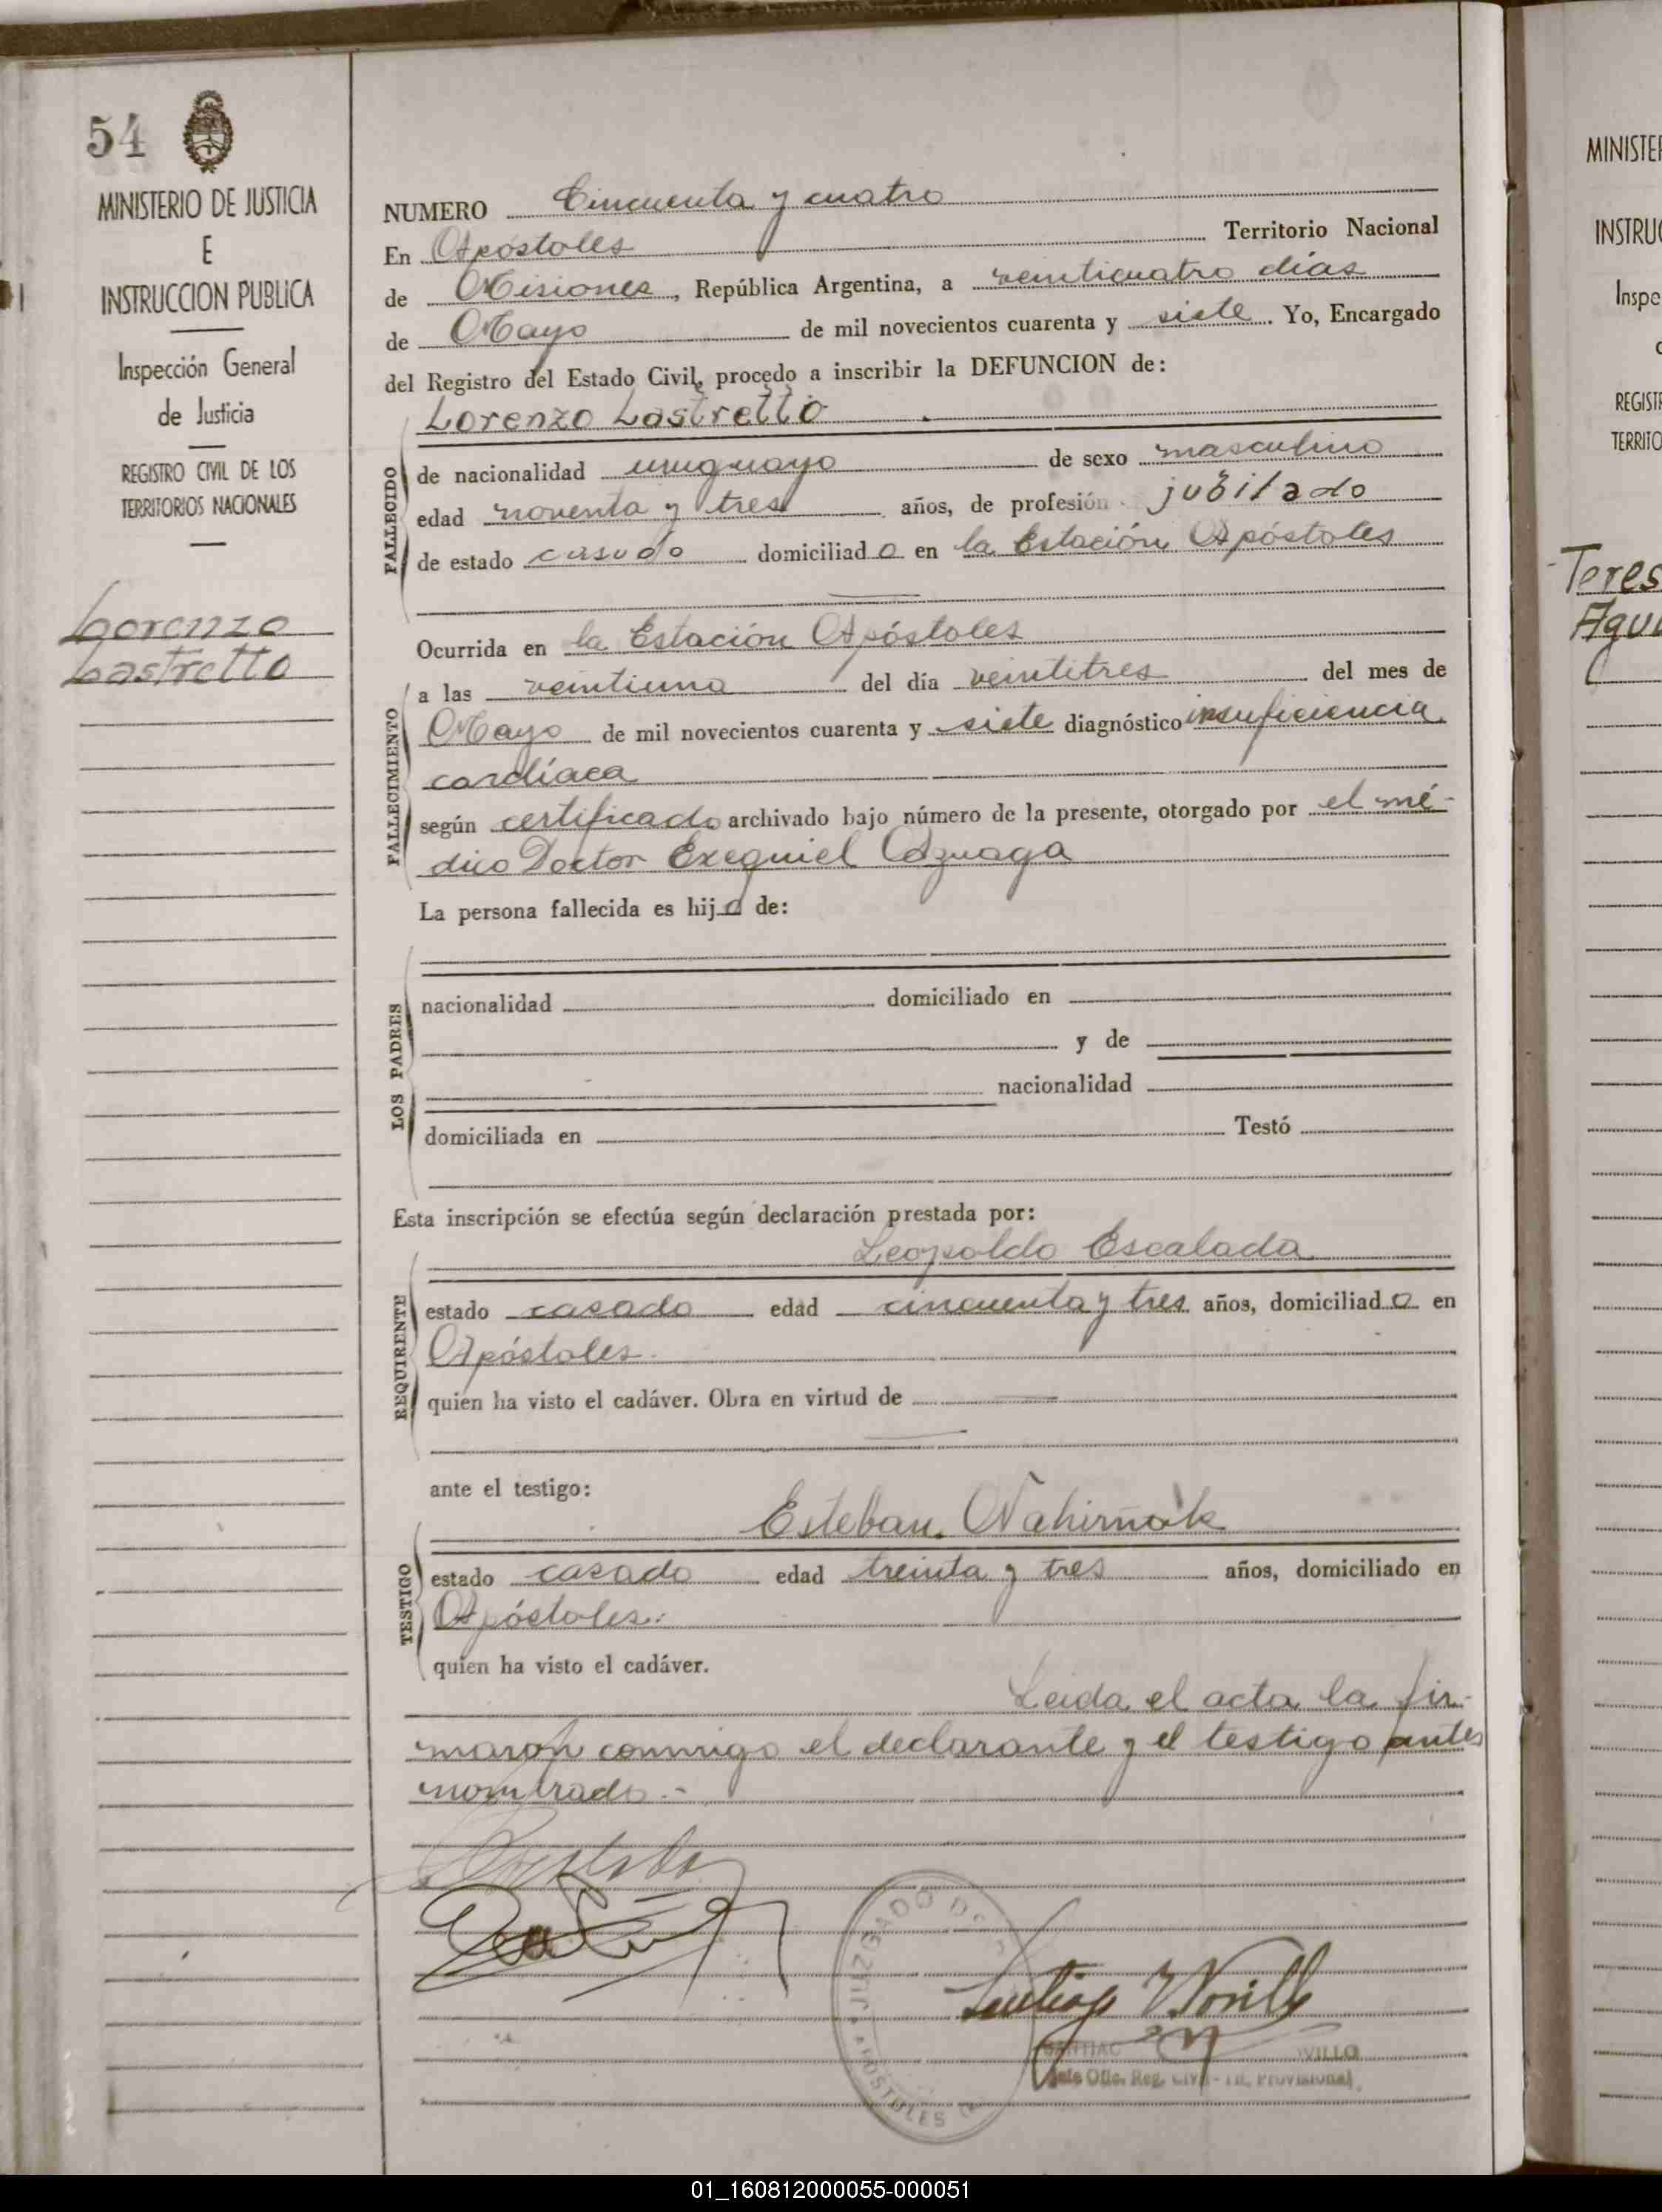 54
MINISTERIO DE JUSTICIA
E
INSTRUCCION PUBLICA
Inspección General
de Justicia
REGISTRO CIVIL DE LOS
TERRITORIOS NACIONALES
Lorenzo
Lastretto
NUMERO Cincuenta y cuatro
En Apóstoles Territorio Nacional
de Misiones, República Argentina, a veinticuatro días
de Mayo de mil novecientos cuarenta y siete. Yo, Encargado
del Registro del Estado Civil, procedo a inscribir la DEFUNCION de:
Lorenzo Lastretto
FALLECIDO
de nacionalidad uruguayo de sexo masculino
edad noventa y tres años, de profesión jubilado
de estado casado domiciliado en la Estación Apóstoles
Ocurrida en la Estación Apóstoles
FALLECIMIENTO
a las veintiuna del día veintitres del mes de
Mayo de mil novecientos cuarenta y siete diagnóstico insuficiencia
cardíaca
según certificado archivado bajo número de la presente, otorgado por el mé-
dico Doctor Exequiel Azuaga
La persona fallecida es hijo de:
LOS PADRES
nacionalidad domiciliado en
y de
nacionalidad
domiciliada en Testó
Esta inscripción se efectúa según declaración prestada por:
Leopoldo Escalada
REQUIRENTE
estado casado edad cincuenta y tres años, domiciliado en
Apóstoles.
quien ha visto el cadáver. Obra en virtud de
ante el testigo:
Esteban Nahirñak
TESTIGO
estado casado edad treinta y tres años, domiciliado en
Apóstoles.
quien ha visto el cadáver.
Leida el acta la fir-
maron conmigo el declarante y el testigo antes
nombrado.-
JUZGADO DE
APOSTOLES
Santiago
01_160812000055-000051
MINISTE
INSTRU
Inspe
REGIST
TERRITO
Teres
Agu